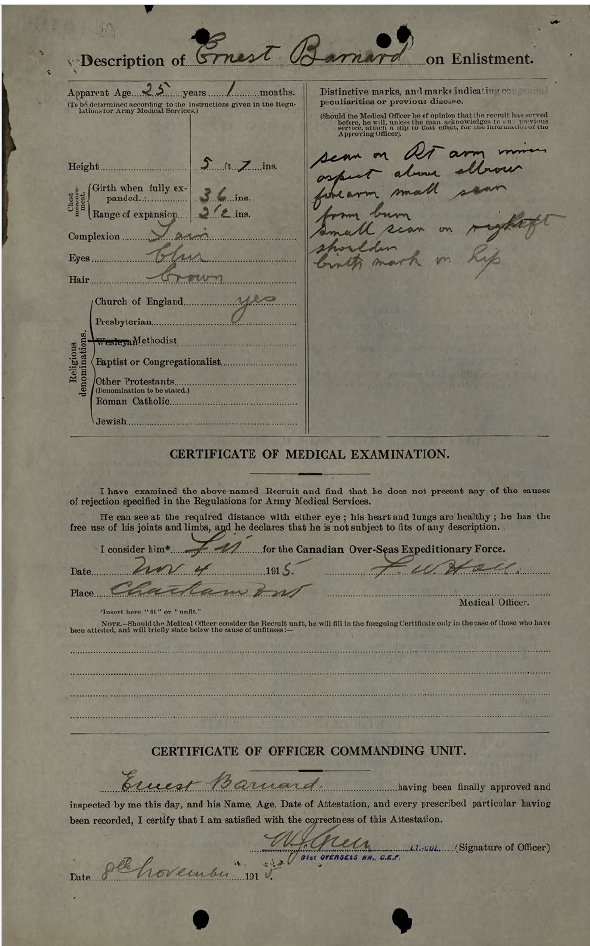 Description of Ernest Barnard on Enlistment.
Apparent Age 25 years 1 months.
(To be determined according to the instructions given in the Regulations for Army Medical Services.)
Height 5 ft 7 ins.
Chest measurement.
Girth when fully expanded 36 ins.
Range of expansion 2 1/2 ins.
Complexion Fair
Eyes blue
Hair brown
Religious denominations.
Church of England yes
Presbyterian
Wesleyan Methodist
Baptist or Congregationalist
Other Protestants
(Denomination to be stated.)
Roman Catholic
Jewish
Distinctive marks, and marks indicating congenital
peculiarities or previous disease.
(Should the Medical Officer be of opinion that the recruit has served
before, he will, unless the man acknowledges to any previous
service, attach a slip to that effect, for the information of the
Approving Officer).
scar on Rt arm
aspect above elbow
forearm small scar
from burn
small scar on
shoulder
birth mark on hip
CERTIFICATE OF MEDICAL EXAMINATION.
I have examined the above-named Recruit and find that he does not present any of the causes
of rejection specified in the Regulations for Army Medical Services.
He can see at the required distance with either eye ; his heart and lungs are healthy ; he has the
free use of his joints and limbs, and he declares that he is not subject to fits of any description.
I consider him* Fit for the Canadian Over-Seas Expeditionary Force.
Date Nov 4 1915. Hall.
Place Chatham Ont
Medical Officer.
*Insert here "fit" or "unfit."
NOTE.—Should the Medical Officer consider the Recruit unfit, he will fill in the foregoing Certificate only in the case of those who have
been attested, and will briefly state below the cause of unfitness :—
CERTIFICATE OF OFFICER COMMANDING UNIT.
Ernest Barnard. having been finally approved and
inspected by me this day, and his Name, Age, Date of Attestation, and every prescribed particular having
been recorded, I certify that I am satisfied with the correctness of this Attestation.
LT.-COL. (Signature of Officer)
91st OVERSEAS BN., C.E.F.
Date 8th November 1915.